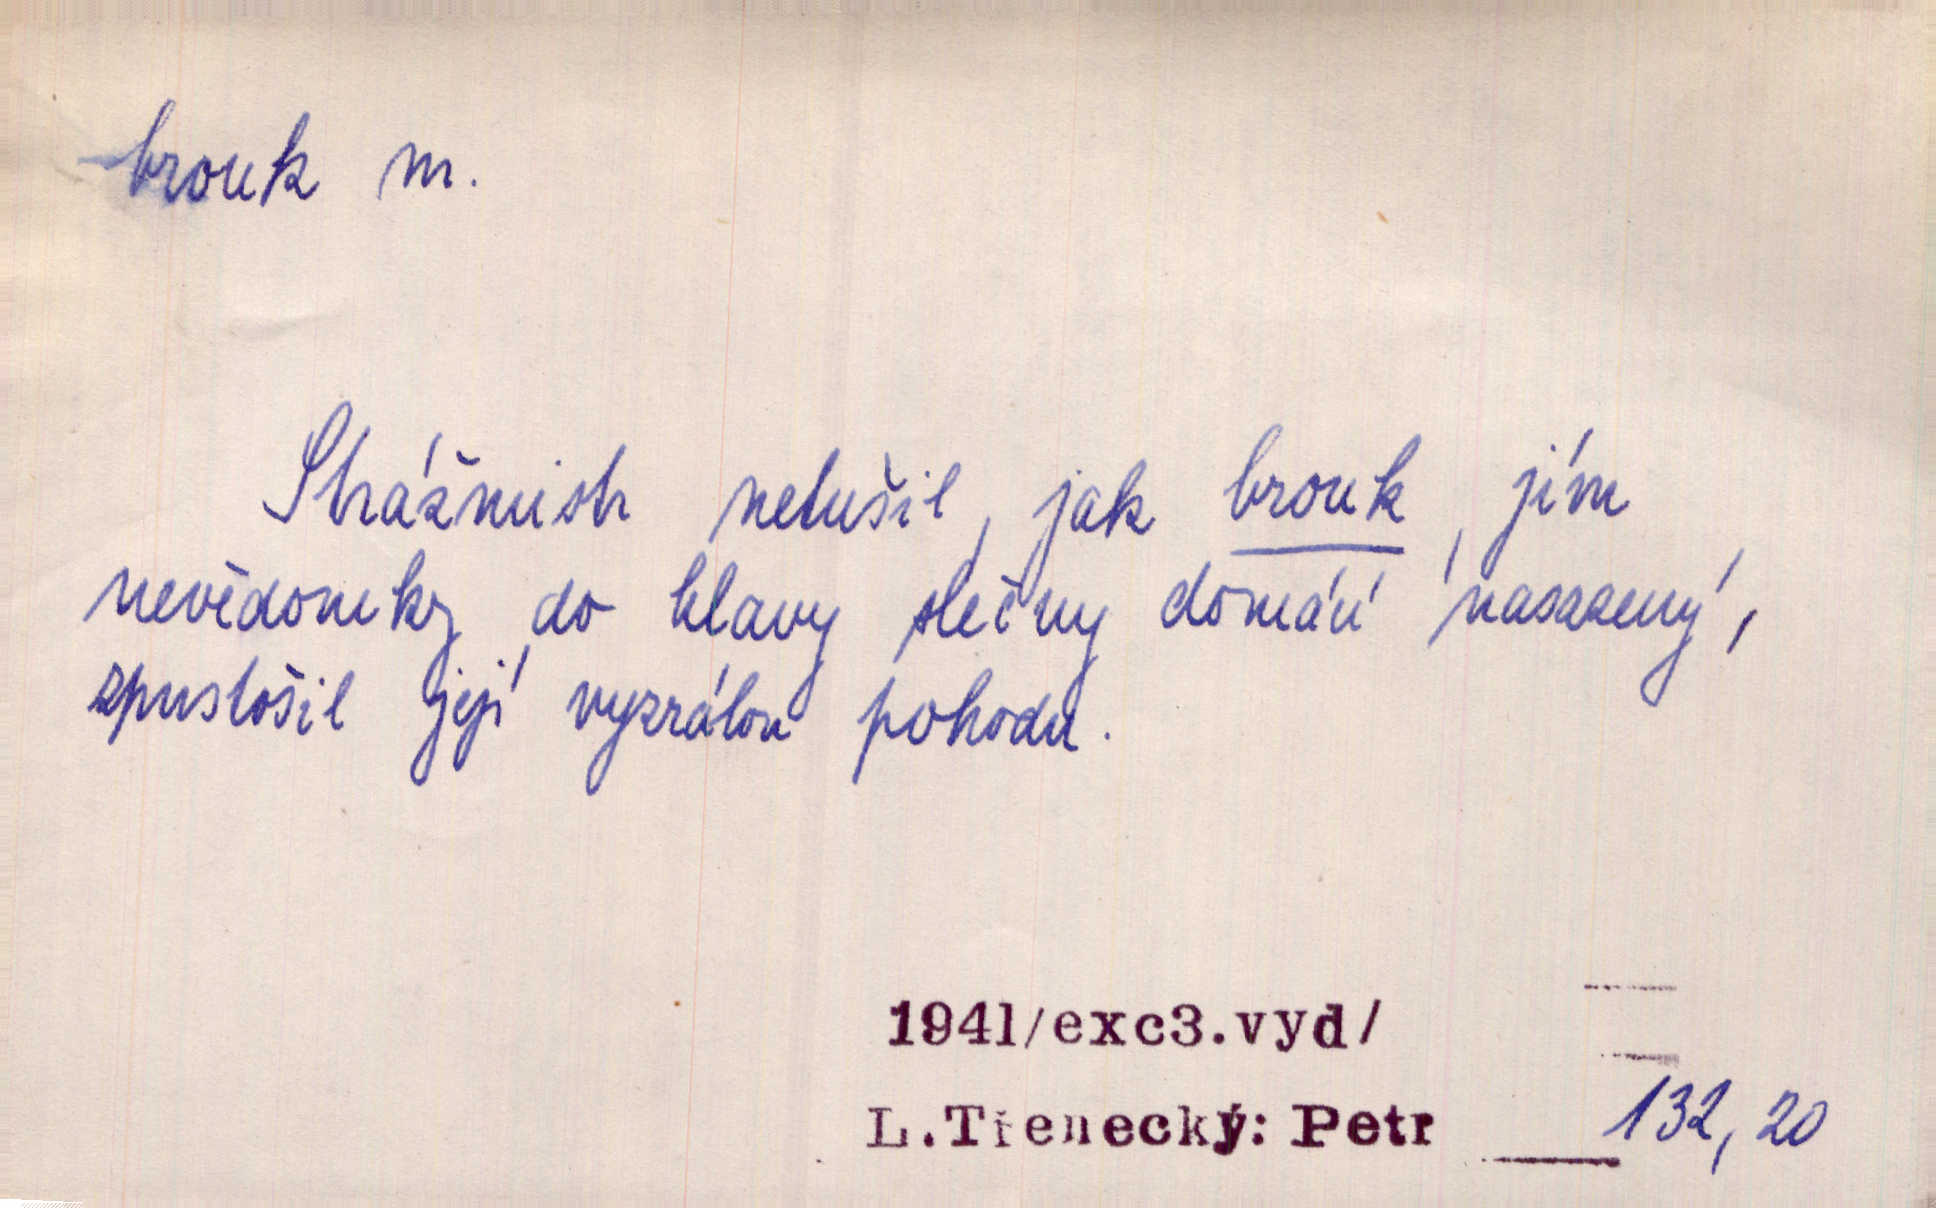 brouk m.
Strážmistr netušil, jak brouk, jím
nevědomky do hlavy slečny domácí nasazený,
zpustošil její vyzrálou pohodu.
1941/exc3.vyd/
L.Třenecký: Petr 132, 20